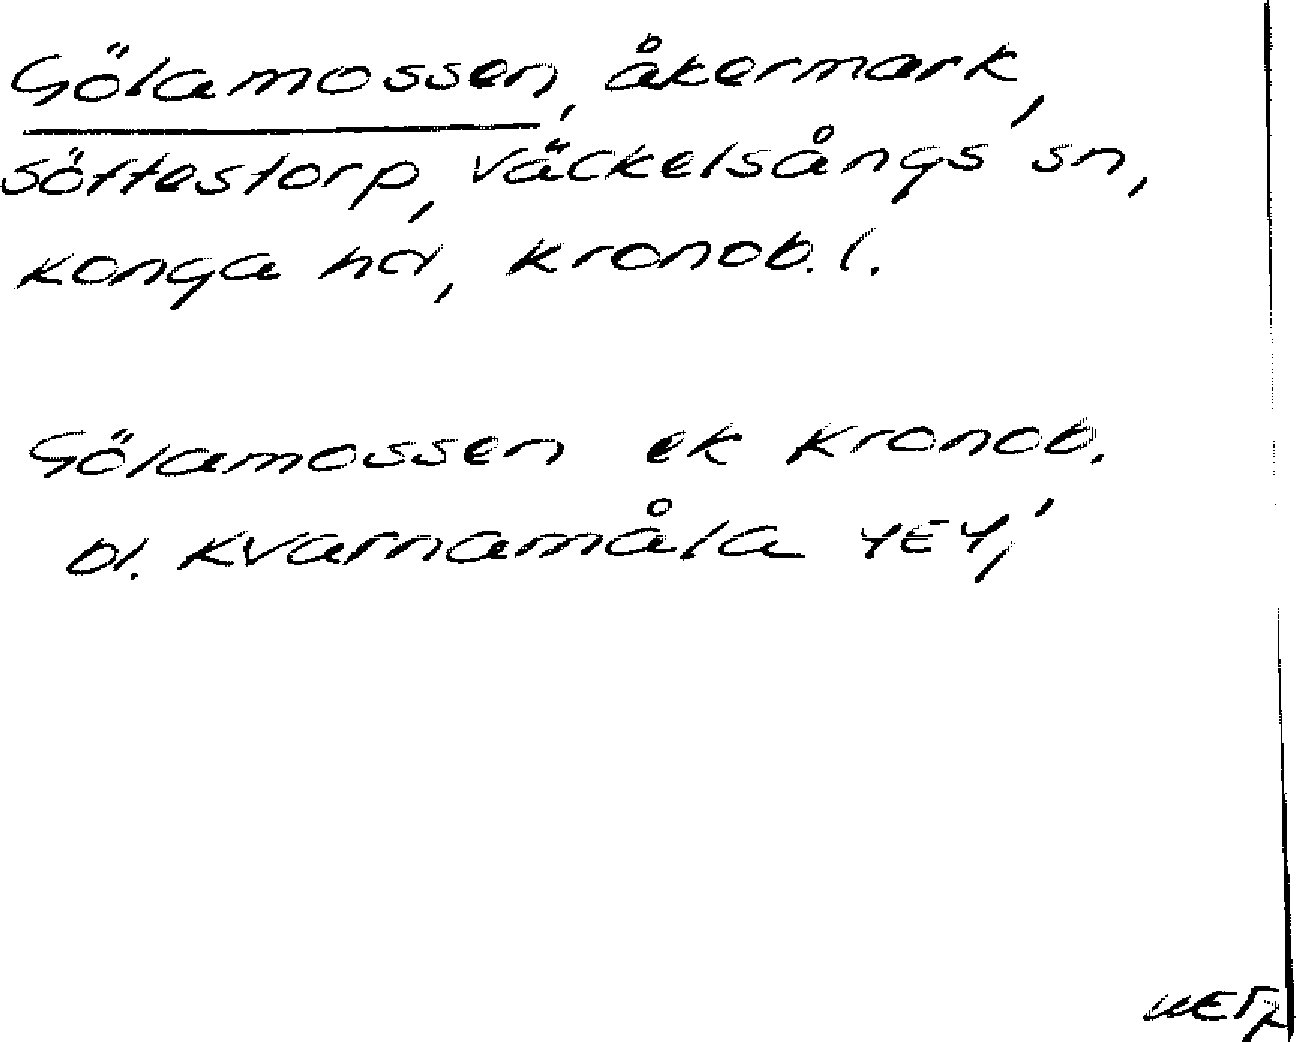 Gölamossen, åkermark,
Söftestorp, Väckelsångs sn,
Konga hd, Kronob. l.
Gölamossen ek Kronob.
bl. Kvarnamåla 4E4,